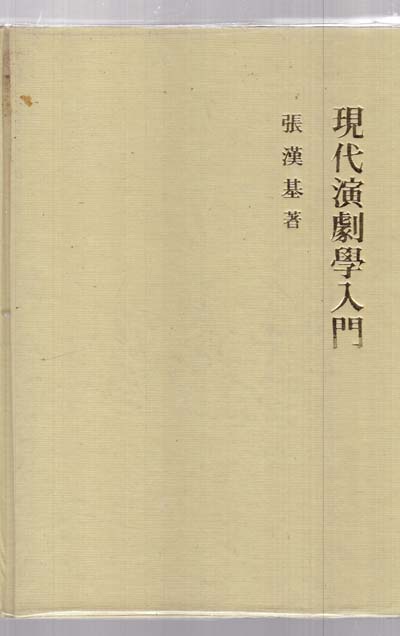 現代演劇學入門
張漢基著